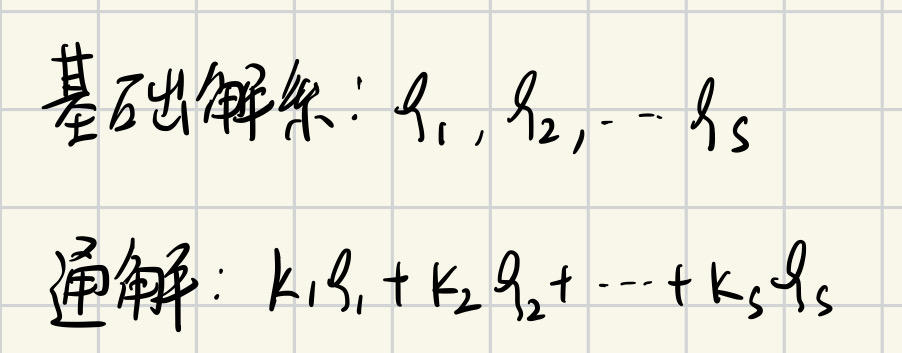 基础解系：η₁, η₂, ··· ηₛ
通解：k₁η₁ + k₂η₂ + ··· + kₛηₛ